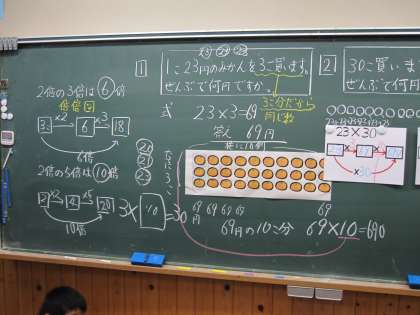 2倍の3倍は⑥倍
倍倍図
3 ×2 6 ×3 18
6倍
2倍の5倍は⑩倍
×2 4 ×5 20
10倍
1
1こ23円のみかんを3こ買います。
ぜんぶで何円ですか。
式 23×3=69
答え 69円
3こ分だから
3×10=30
69円 69 69 69 69
69円の10こ分 69×10=690
2
30こ買いま
ぜんぶで何
23×30
×30